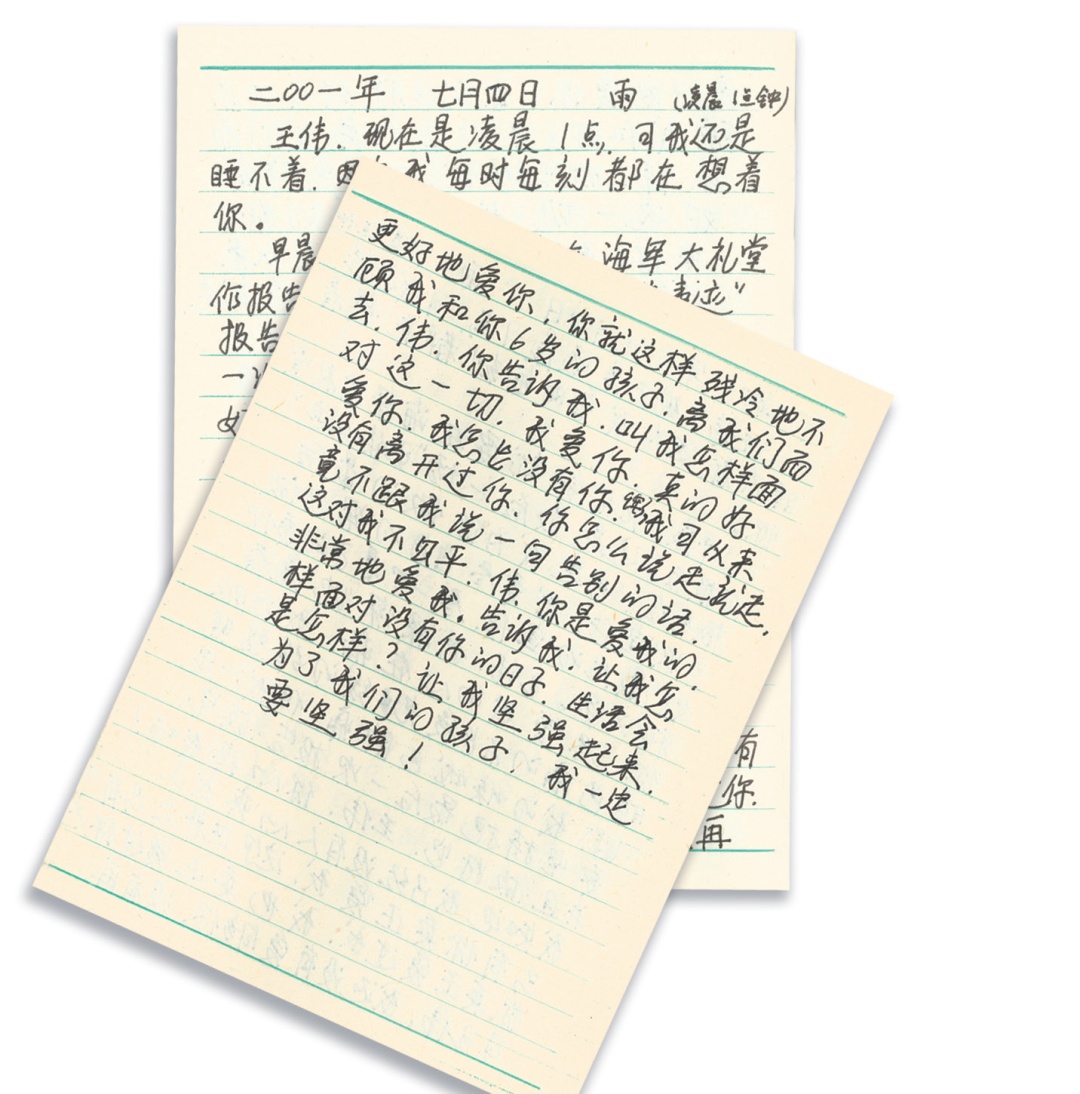 二〇〇一年 七月四日 雨 (凌晨1点钟)
王伟.现在是凌晨1点.可我还是
睡不着.因为我每时每刻都在想着
你。
早晨 海军大礼堂
作报告 事迹”
报告
一
好
有
你.
再
更好地爱你,你就这样残冷地不
顾我和你6岁的孩子.离我们而
去.伟.你告诉我.叫我怎样面
对这一切.我爱你.真的好
爱你.我怎能没有你呢我可从来
没有离开过你.你怎么说走就走,
竟不跟我说一句告别的话.
这对我不公平.伟.你是爱我的.
非常地爱我.告诉我.让我怎
样面对没有你的日子.生活会
是怎样?让我坚强起来.
为了我们的孩子.我一定
要坚强!